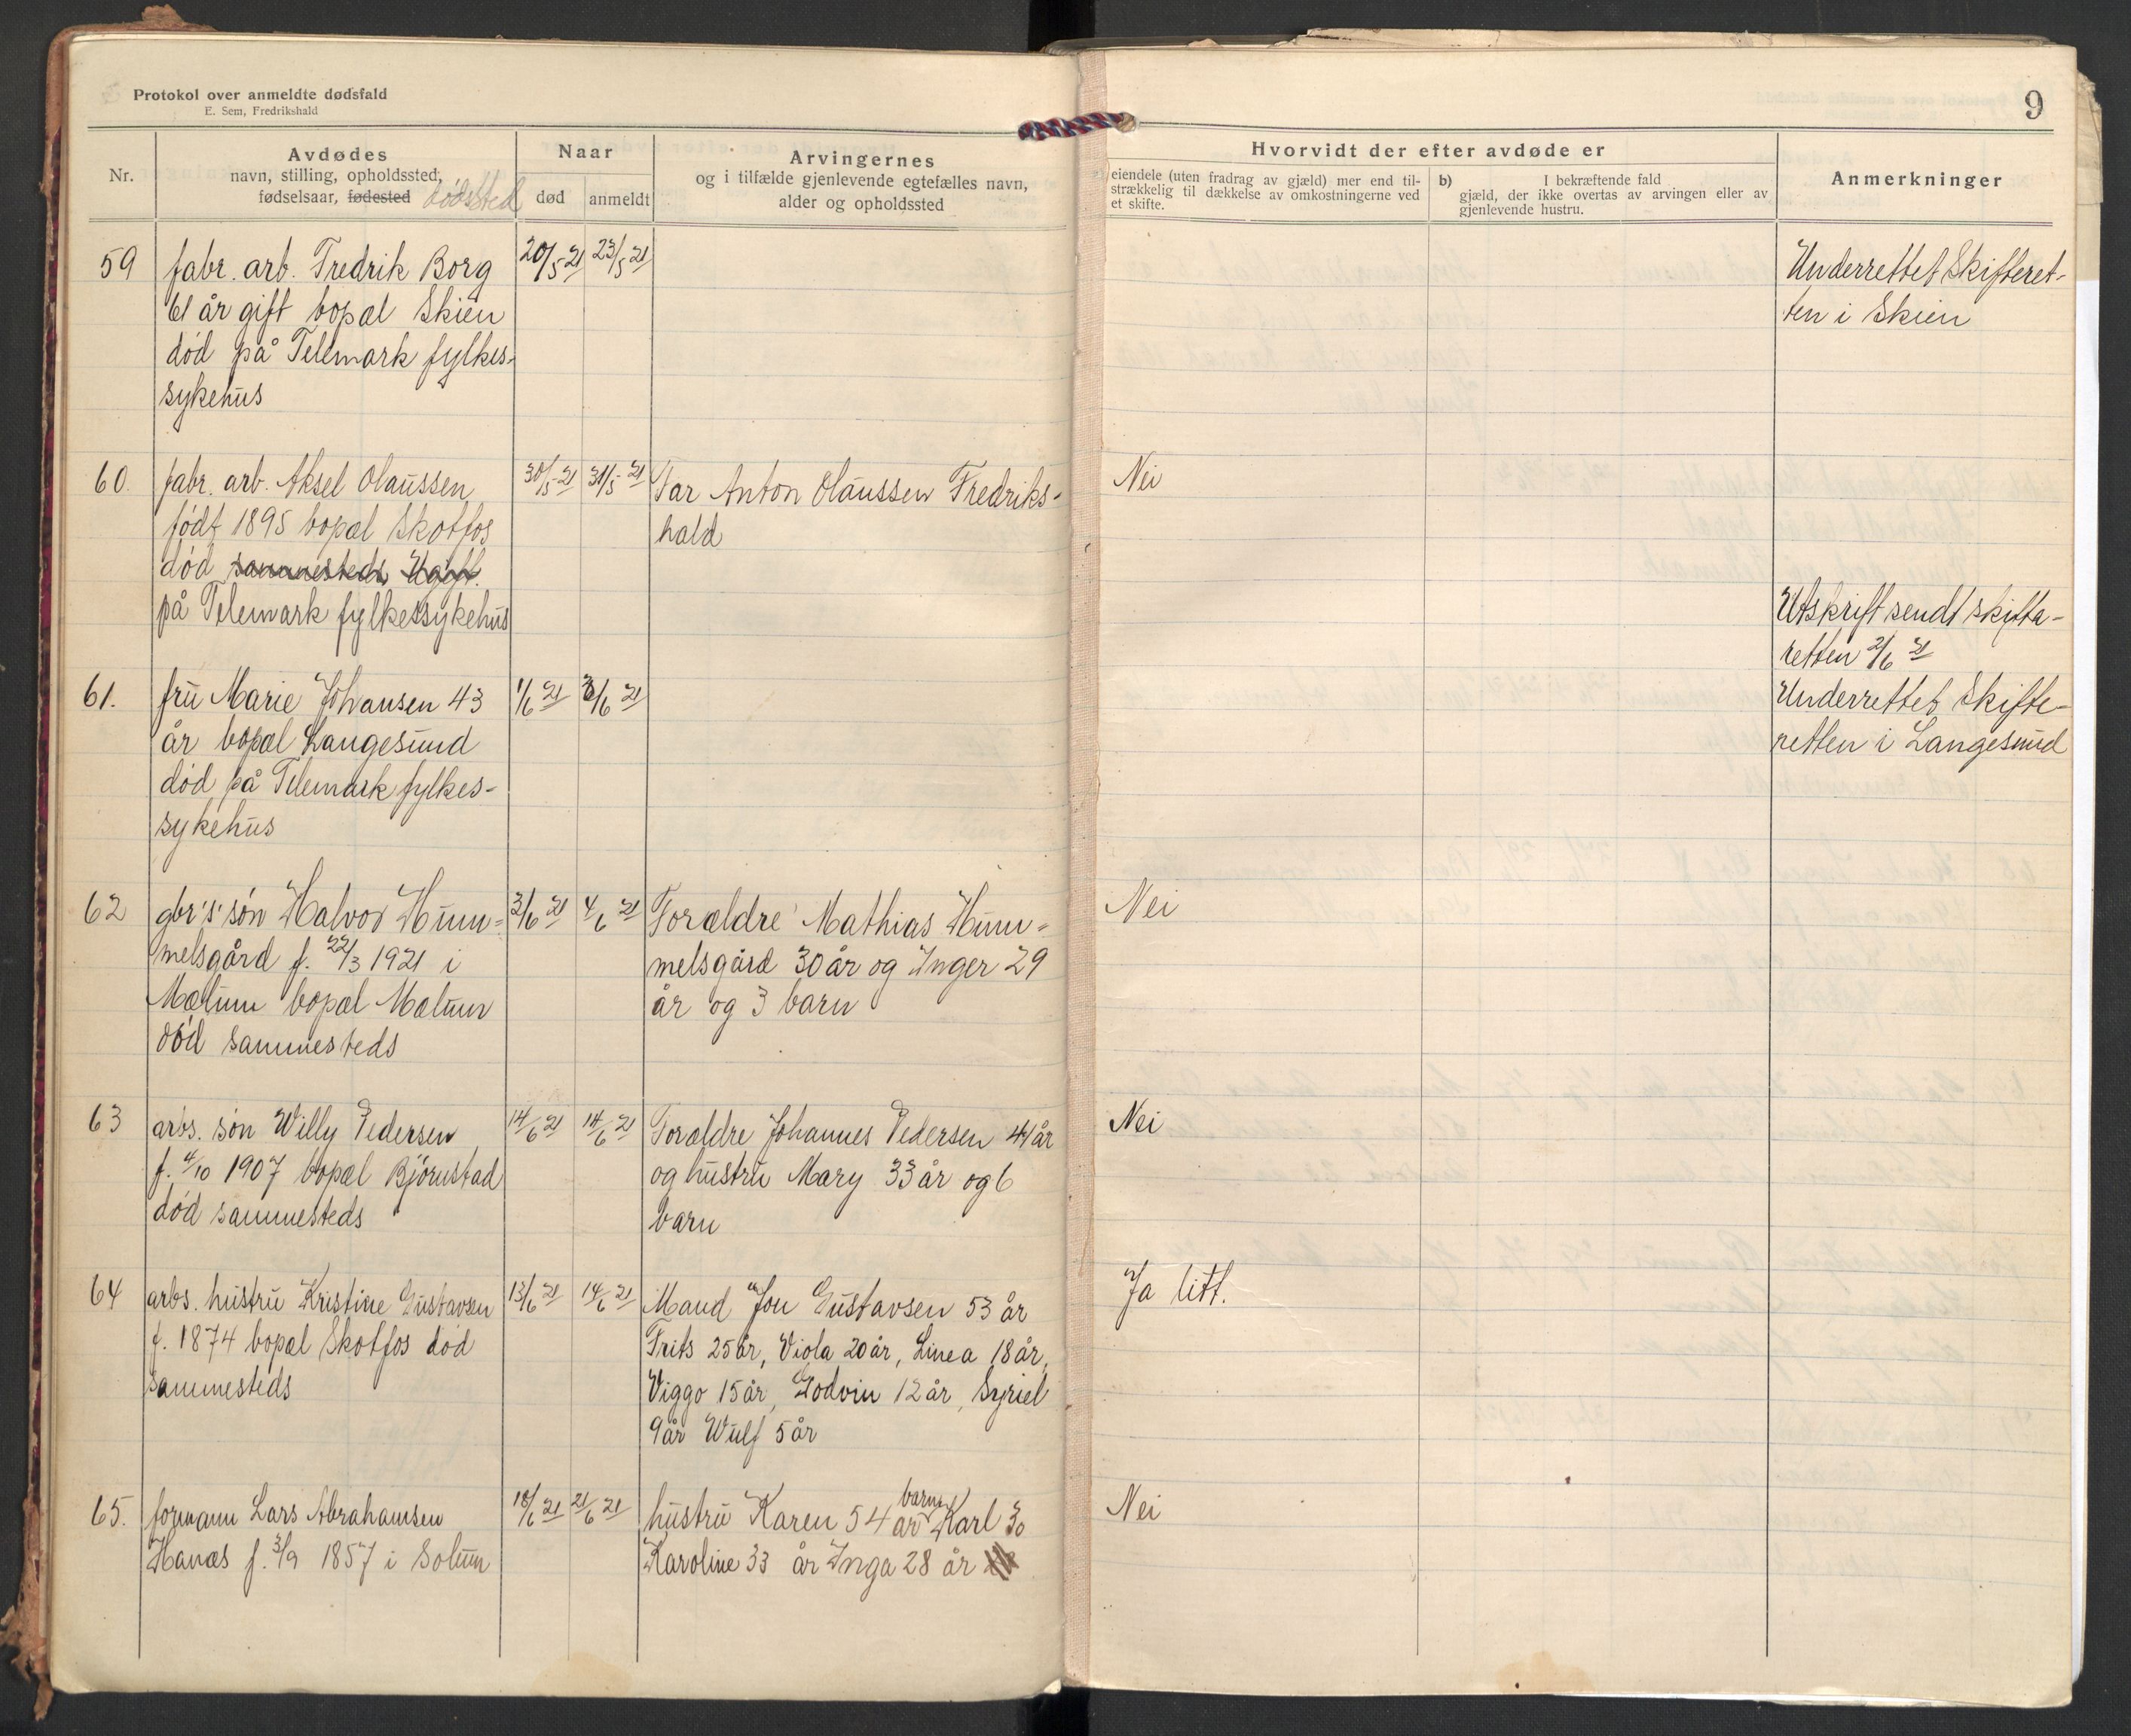 Protokol over anmeldte dødsfald
E. Sem, Fredrikshald
9
Nr.
Avdødes
navn, stilling, opholdssted,
fødselsaar, fødested dödssted
Naar
død
anmeldt
Arvingernes
og i tilfælde gjenlevende egtefælles navn,
alder og opholdssted
Hvorvidt der efter avdøde er
eiendele (uten fradrag av gjæld) mer end til-
strækkelig til dækkelse av omkostningerne ved
et skifte.
b) I bekræftende fald
gjæld, der ikke overtas av arvingen eller av
gjenlevende hustru.
Anmerkninger
59 fabr. arb. Fredrik Borg 20/5 21 23/5 21 Underrettet Skifteret-
61 år gift bopæl Skien ten i Skien
död på Telemark fylkes-
sykehus
60. fabr. arb. Aksel Olaussen 30/5 21 31/5 21 Far Anton Olaussen Fredriks- Nei
födt 1895 bopæl Skotfos hald
död sammesteds Ugift.
på Telemark fylkessykehus Utskrift sendt skifta-
retten 2/6 21
61. frü Marie Johansen 43 1/6 21 3/6 21 Underrettet Skifte-
år bopæl Langesund retten i Langesund
död på Telemark fylkes-
sykehus
62 gbr's' sön Halvor Hum- 3/6 21 4/6 21 Forældre Mathias Hum- Nei
melsgård f. 22/3 1921 i melsgård 30 år og Inger 29
Mælum bopæl Mælum år og 3 barn
död sammesteds
63 arbs. sön Willy Pedersen 14/6 21 14/6 21 Forældre Johannes Pedersen 41 år Nei
f. 4/10 1907 bopæl Björnstad og hustru Mary 33 år og 6
död sammesteds barn
64 arbs. hustru Kristine Gustavsen 13/6 21 14/6 21 Mand Jon Gustavsen 53 år Ja litt.
f. 1874 bopæl Skotfos död Frits 25 år, Viola 20 år, Linea 18 år,
sammesteds Viggo 15 år, Godvin 12 år, Syriel
9 år Wulf 5 år
65. formann Lars Abrahamsen 18/6 21 21/6 21 hustru Karen 54 år barn Karl 30 Nei
Hanæs f. 3/9 1857 i Solum Karoline 33 år Inga 28 år